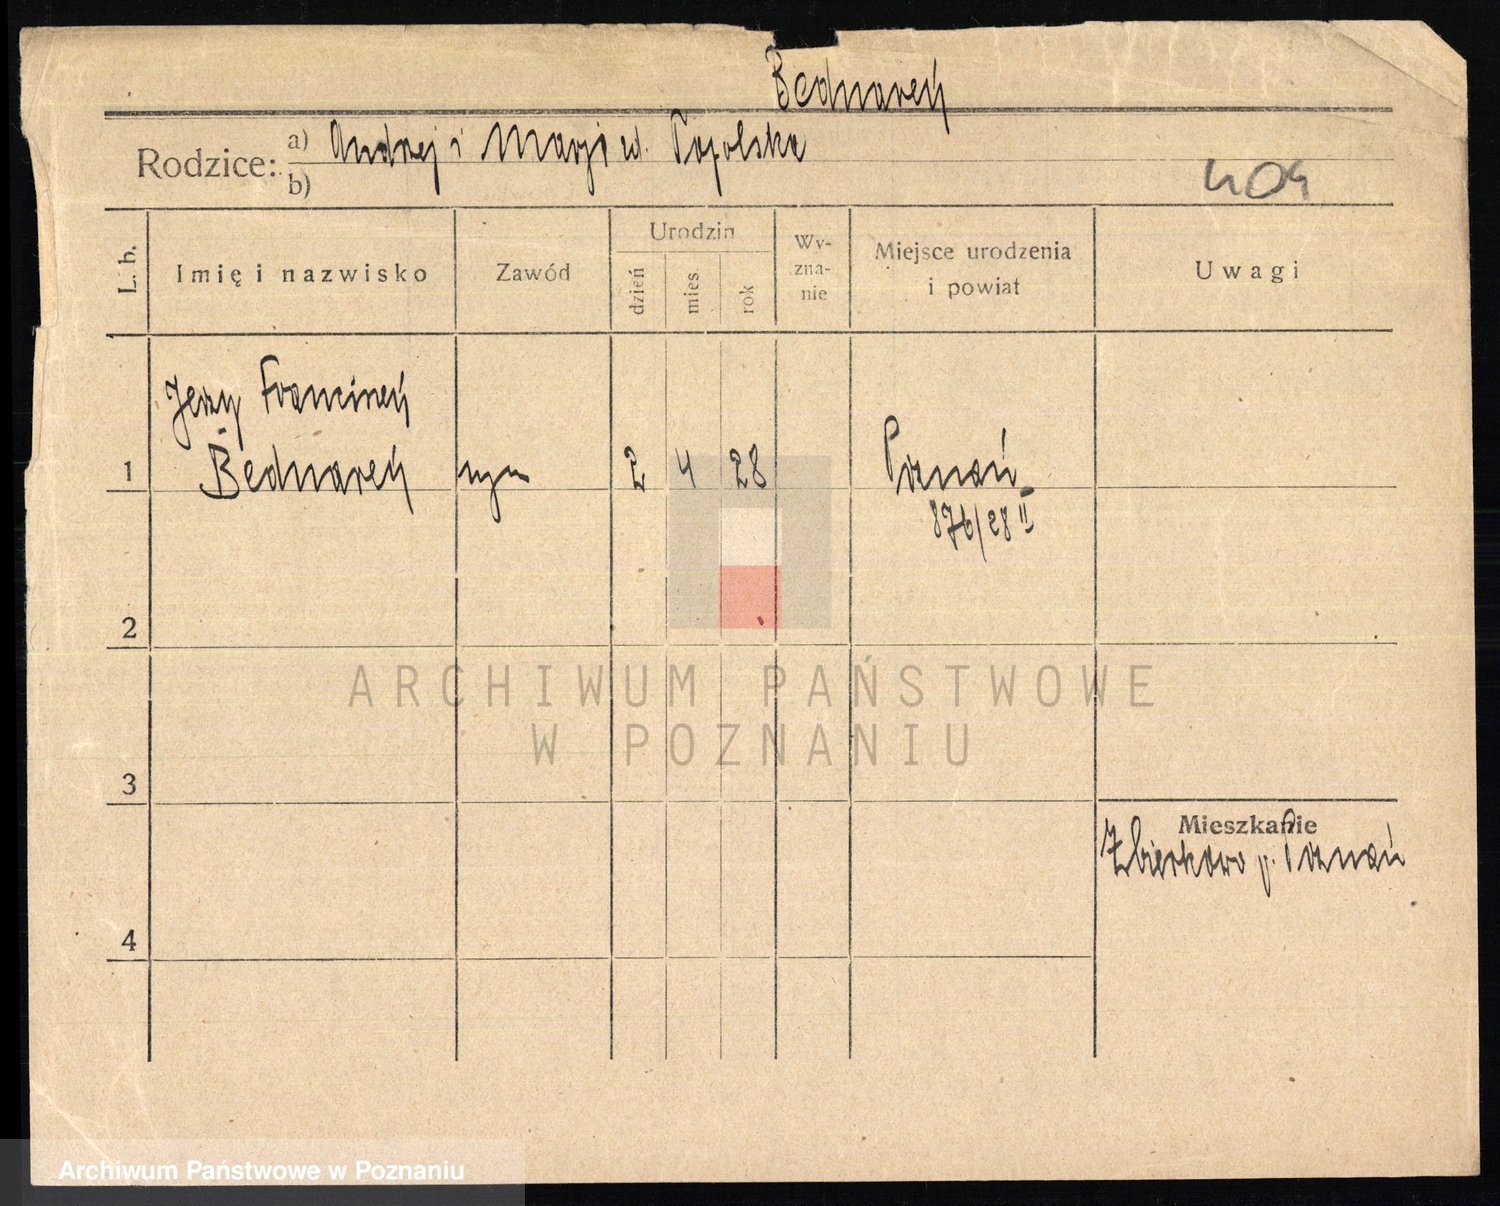 Bednarek
Rodzice: a) Andrzej i Marja ud. Popolska
b)
404
L. b.
Imię i nazwisko
Zawód
Urodzin
dzień
mies
rok
Wy-
zna-
nie
Miejsce urodzenia
i powiat
Uwagi
Jerzy Franciszek
1 Bednarek syn 2 4 28 Poznań
876/28 II
2
3
Mieszkanie
Żbierkowo p. Poznań
4
ARCHIWUM PAŃSTWOWE
W POZNANIU
Archiwum Państwowe w Poznaniu